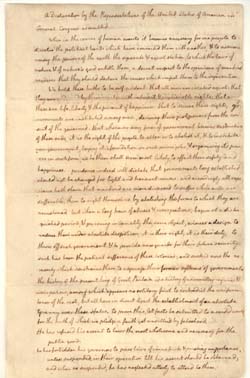 A Declaration by the Representatives of the United States of America in
General Congress assembled
When in the course of human events it becomes necessary for one people to
dissolve the political bands which have connected them with another, & to assume
among the powers of the earth the separate & equal station to which the laws of
nature & of nature's god entitle them, a decent respect to the opinions of mankind
requires that they should declare the causes which impel them to the separation.
We hold these truths to be self evident: that all men are created equal; that
they are endowed by their creator with inherent & inalienable rights; that
these are life, liberty, & the pursuit of happiness; that to secure these rights, go-
vernments are instituted among men, deriving their just powers from the con-
sent of the governed; that whenever any form of government becomes destructive
of these ends, it is the right of the people to alter or to abolish it, & to institute
new government, laying it's foundation on such principles, & organising it's pow-
ers in such form, as to them shall seem most likely to effect their safety &
happiness. prudence indeed will dictate that governments long established
should not be changed for light & transient causes; and accordingly all expe-
rience hath shewn that mankind are more disposed to suffer while evils are
sufferable, than to right themselves by abolishing the forms to which they are
accustomed. but when a long train of abuses & usurpations, begun at a distin-
guished period & pursuing invariably the same object, evinces a design to
reduce them under absolute despotism, it is their right, it is their duty, to
throw off such government, & to provide new guards for their future security.
such has been the patient sufferance of these colonies; and such is now the ne-
cessity which constrains them to expunge their former systems of government.
the history of the present king of Great Britain is a history of unremitting injuries &
usurpations, among which appears no solitary fact to contradict the uniform
tenor of the rest, but all have in direct object the establishment of an absolute
tyranny over these states. to prove this, let facts be submitted to a candid world
for the truth of which we pledge a faith yet unsullied by falsehood.
He has refused his assent to laws the most wholesome and necessary for the
public good.
he has forbidden his governors to pass laws of immediate & pressing importance,
unless suspended in their operation till his assent should be obtained,
and when so suspended, he has neglected utterly to attend to them.